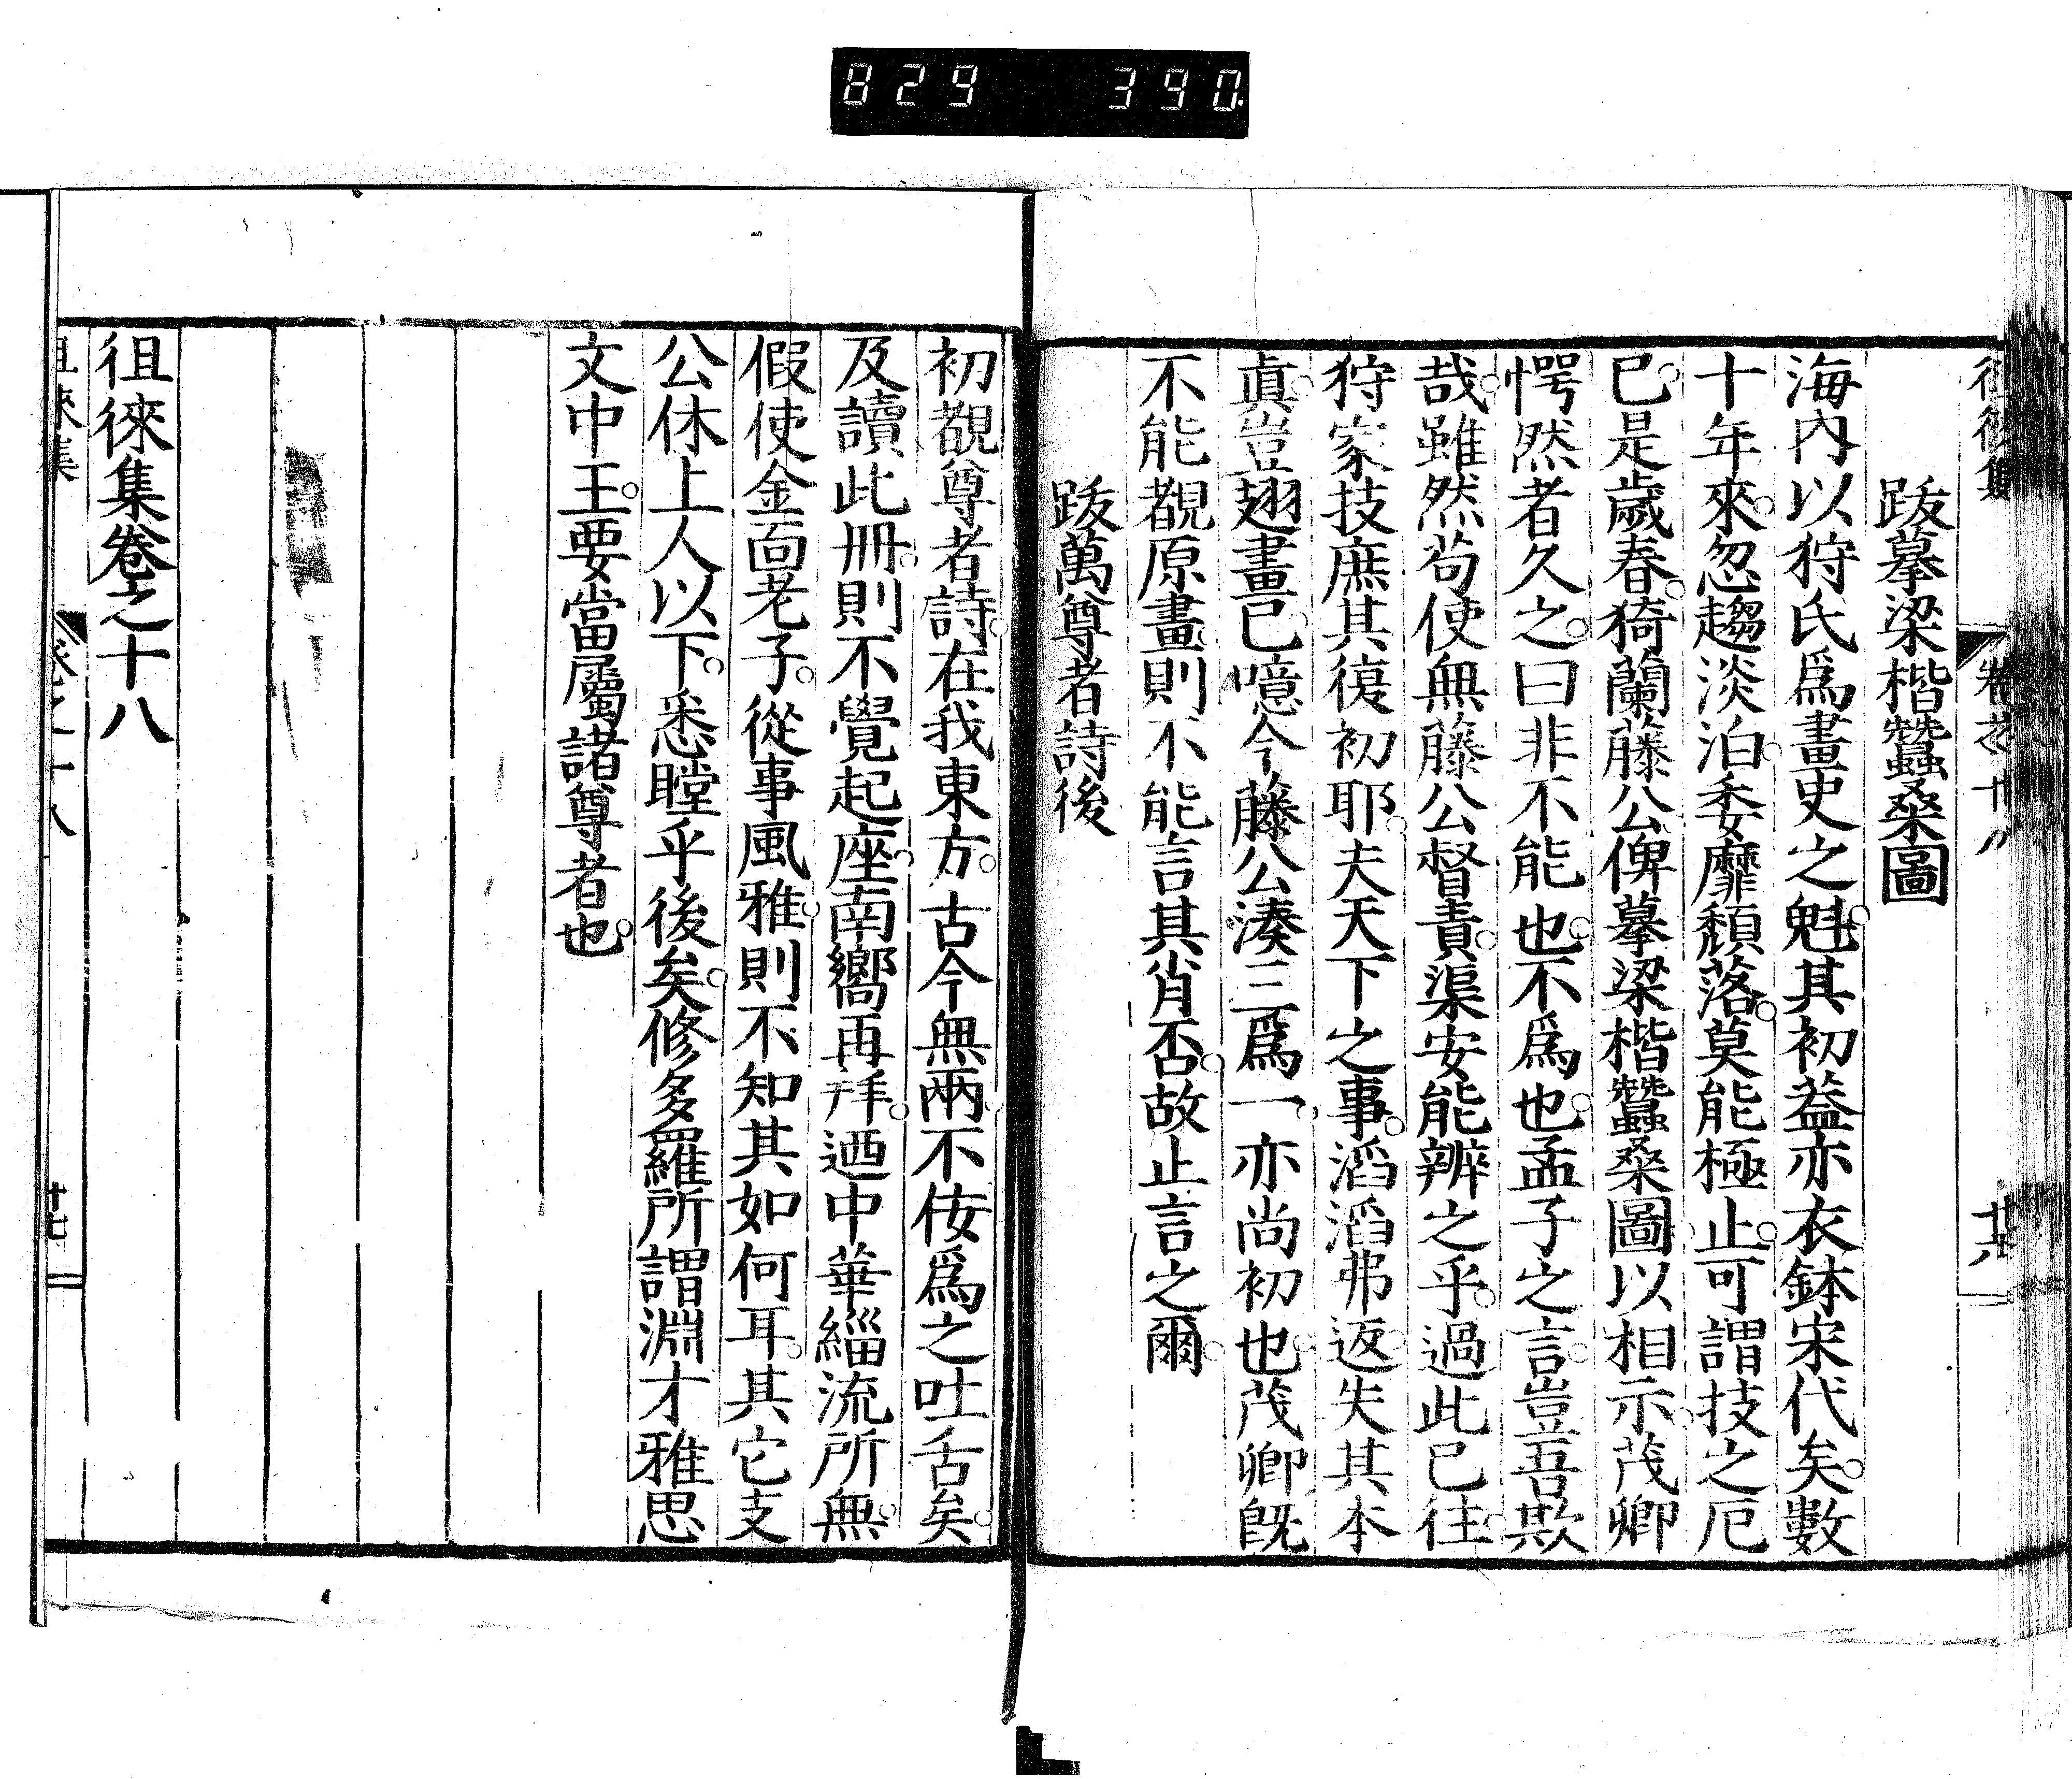 829 390
徂徠集 卷之十八
跋摹梁楷蠶桑圖
海內以狩氏爲畫史之魁其初葢亦衣鉢宋代矣數
十年來忽趨淡泊委靡頹落莫能極止可謂技之厄
已是歲春猗蘭藤公俾摹梁楷蠶桑圖以相示茂卿
愕然者久之曰非不能也不爲也孟子之言豈吾欺
哉雖然茍使無藤公督責渠安能辨之乎過此已往
狩家技庶其復初耶夫天下之事滔滔弗返失其本
眞豈翅畫已噫今藤公湊三爲一亦尚初也茂卿旣
不能覩原畫則不能言其肖否故止言之爾
跋萬尊者詩後
初覩尊者詩在我東方古今無兩不佞爲之吐舌矣
及讀此冊則不覺起座南嚮再拜迺中華緇流所無
假使金面老子從事風雅則不知其如何耳其它支
公休上人以下悉瞠乎後矣修多羅所謂淵才雅思
文中王要當屬諸尊者也
徂徠集卷之十八
徂徠集 卷之十八 十七